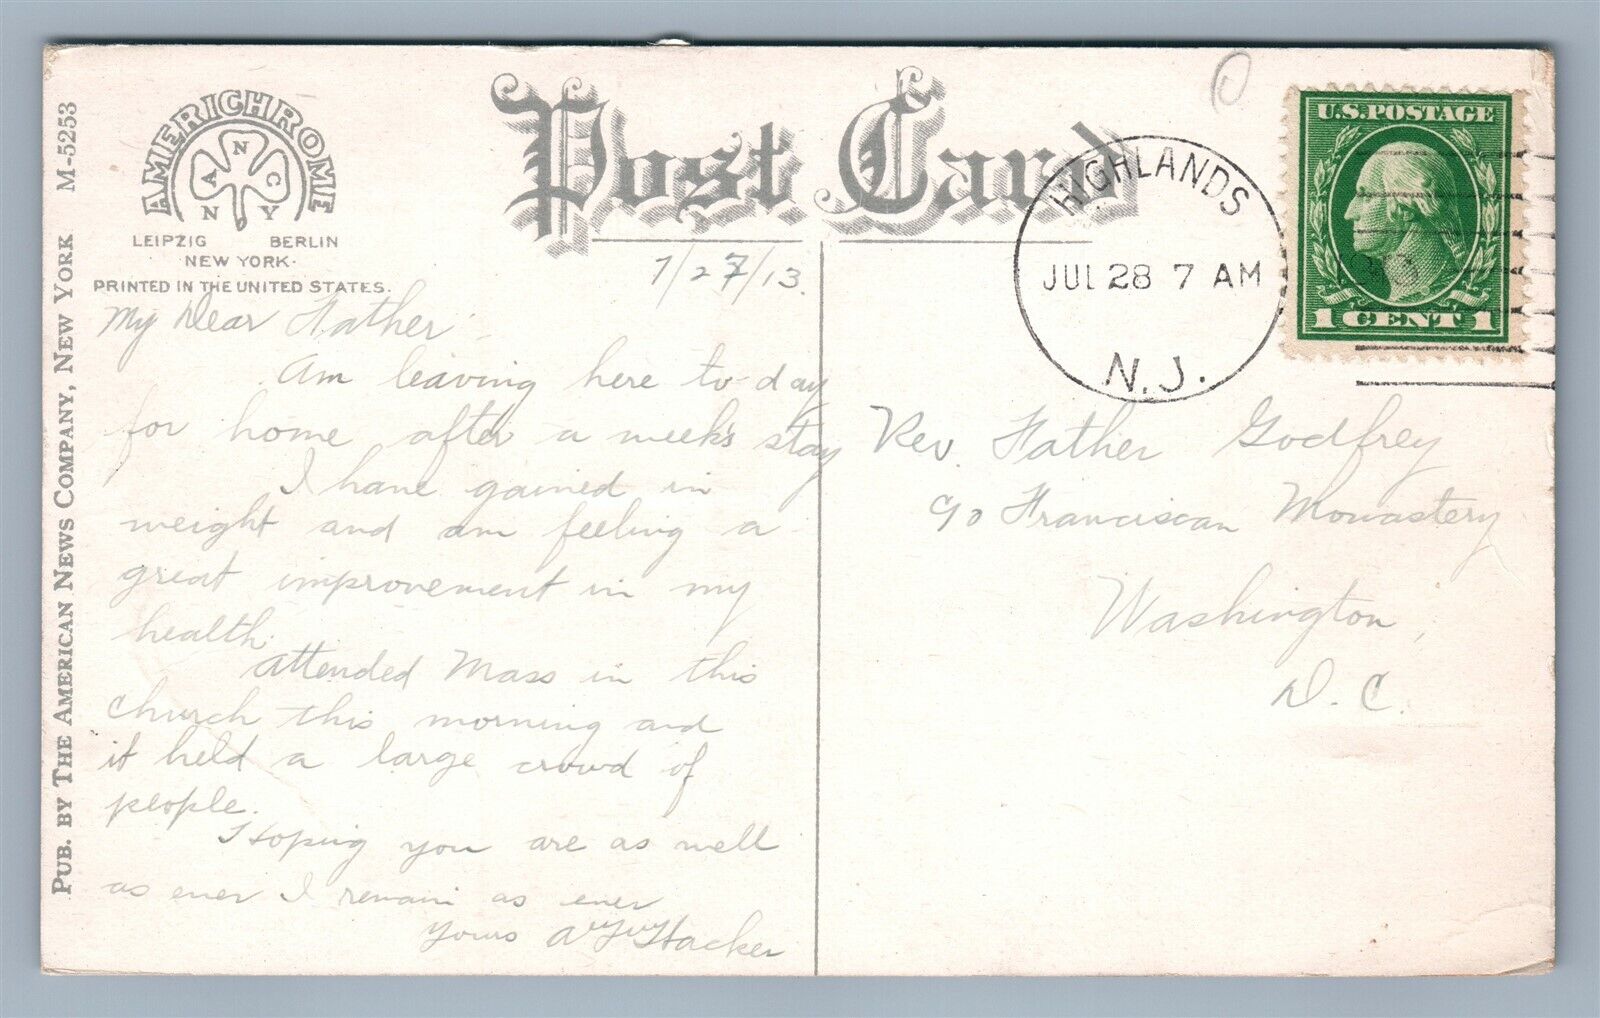 AMERICHROME
A N C
N Y
LEIPZIG BERLIN
NEW YORK
PRINTED IN THE UNITED STATES.
PUB. BY THE AMERICAN NEWS COMPANY, NEW YORK M-5253
Post Card
HIGHLANDS
JUL 28 7 AM
N.J.
U.S. POSTAGE
1 CENT 1
7/27/13.
My Dear Father
Am leaving here to-day
for home after a week's stay
I have gained in
weight and am feeling a
great improvement in my
health.
Attended Mass in this
church this morning and
it held a large crowd of
people.
Hoping you are as well
as ever I remain as ever
Yours Hacker
Rev. Father Godfrey
c/o Franciscan Monastery
Washington,
D.C.